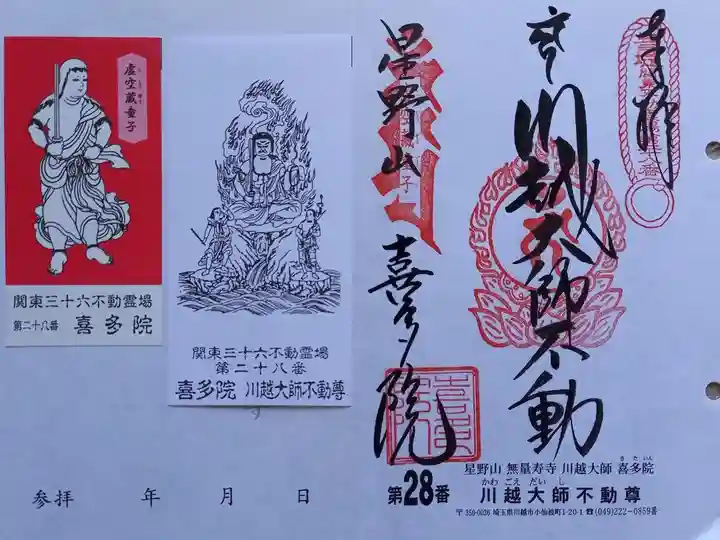 虚空蔵童子
関東三十六不動霊場
第二十八番 喜多院
関東三十六不動霊場
第二十八番
喜多院 川越大師不動尊
参拝 年 月 日
奉拝
川越大師不動
星野山
喜多院
星野山 無量寿寺 川越大師 喜多院
きたいん
第28番 川越大師不動尊
かわごえだいし
〒350-0036 埼玉県川越市小仙波町1-20-1 ☎(049)222-0859番